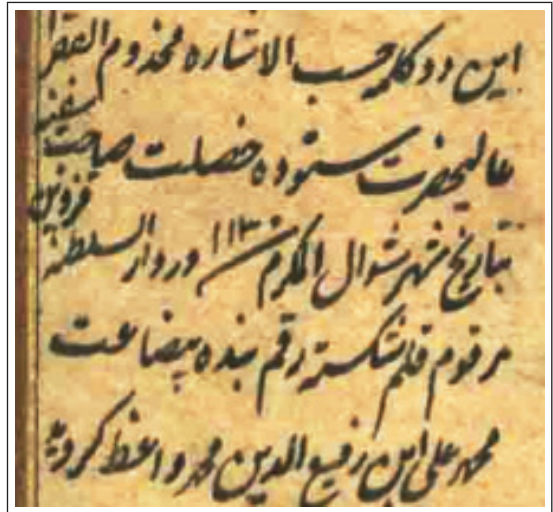 این دو کلمه حسب الاشاره مخدوم الفقرا
عالیحضرت ستوده خصلت صاحب سفینه
بتاریخ شهر شوال المکرم سنه ۱۱۳۰ در دار السلطنه قزوین
مرقوم قلم شکسته رقم بنده بیضاعت
محمد علی ابن رفیع الدین محمد واعظ گردید